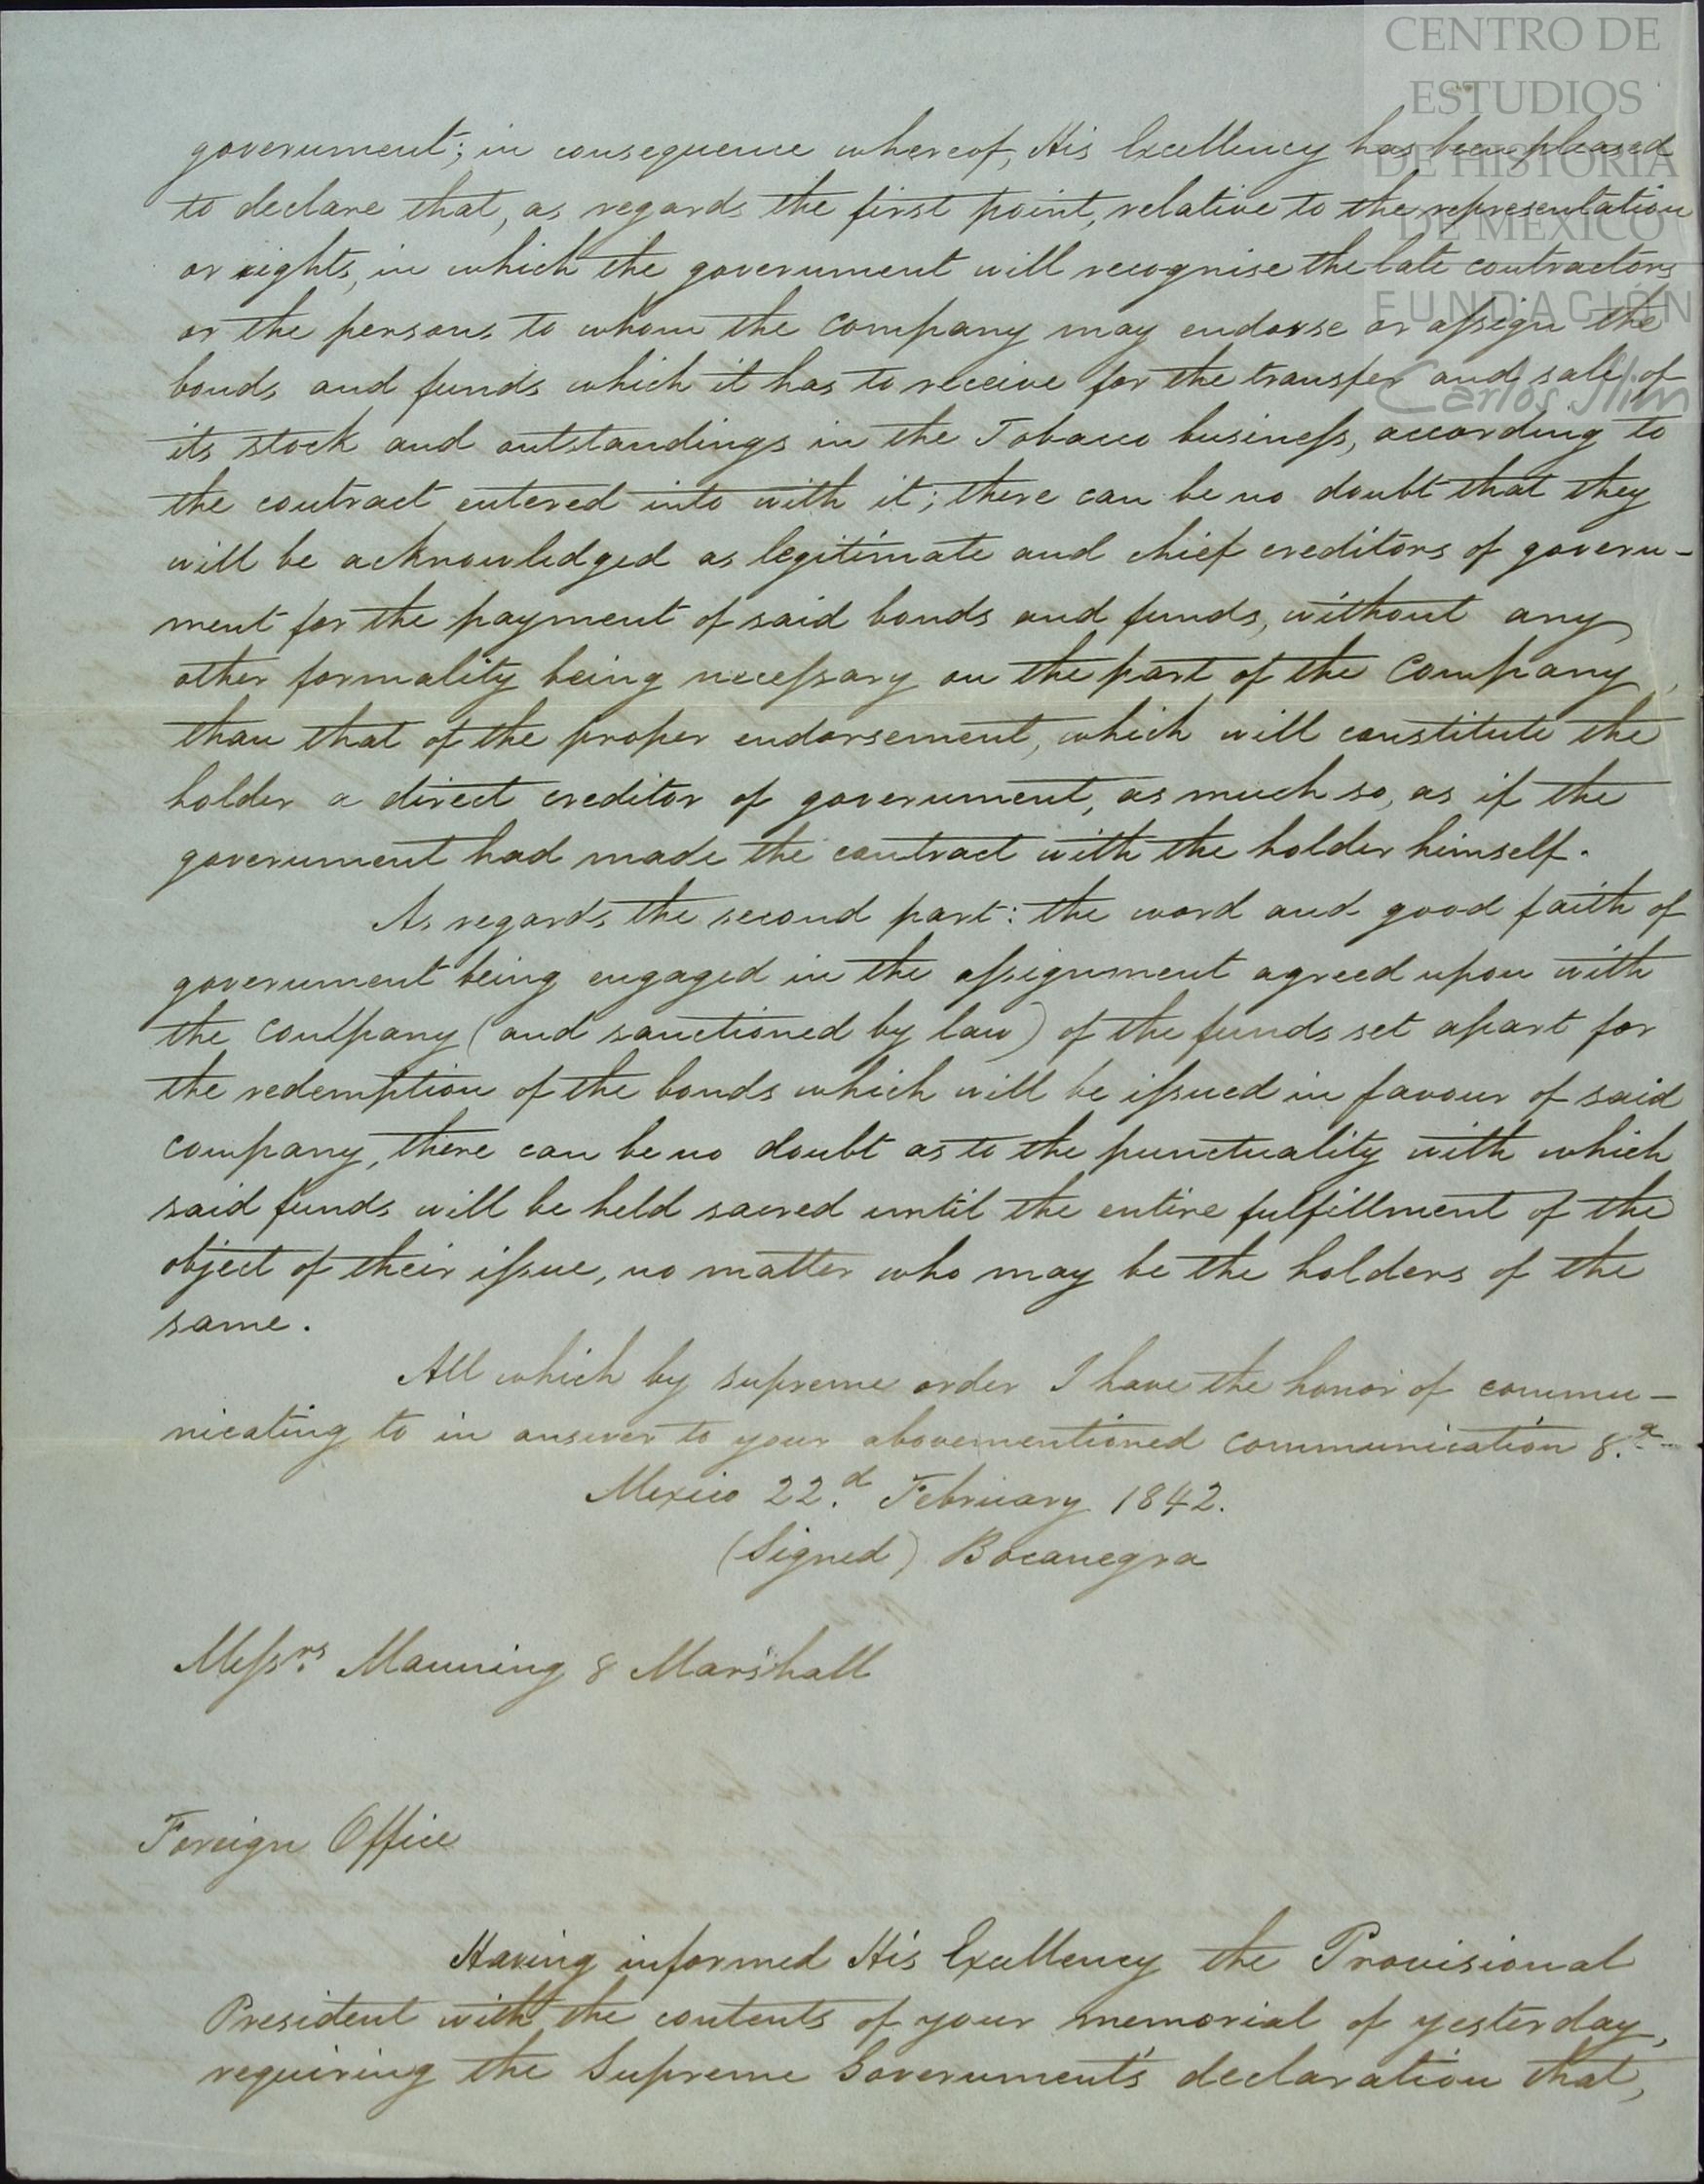 CENTRO DE
ESTUDIOS
DE HISTORIA
DE MÉXICO
FUNDACIÓN
Carlos Slim
government; in consequence whereof, His Excellency has been pleased
to declare that, as regards the first point, relative to the representation
or rights, in which the government will recognise the late contractors
or the persons to whom the company may endorse or assign the
bonds and funds which it has to receive for the transfer and sale of
its stock and outstandings in the Tobacco business, according to
the contract entered into with it; there can be no doubt that they
will be acknowledged as legitimate and chief creditors of govern-
ment for the payment of said bonds and funds, without any
other formality being necessary on the part of the Company,
than that of the proper endorsement, which will constitute the
holder a direct creditor of government, as much so, as if the
government had made the contract with the holder himself.
As regards the second part: the word and good faith of
government being engaged in the assignment agreed upon with
the company (and sanctioned by law) of the funds set apart for
the redemption of the bonds which will be issued in favour of said
company, there can be no doubt as to the punctuality with which
said funds will be held sacred until the entire fulfillment of the
object of their issue, no matter who may be the holders of the
same.
All which by supreme order I have the honor of commu-
nicating to in answer to your abovementioned communication &.a
Mexico 22.d February 1842.
(Signed) Bocanegra
Messrs. Manning & Marshall
Foreign Office
Having informed His Excellency the Provisional
President with the contents of your memorial of yesterday,
requiring the Supreme Government's declaration that,